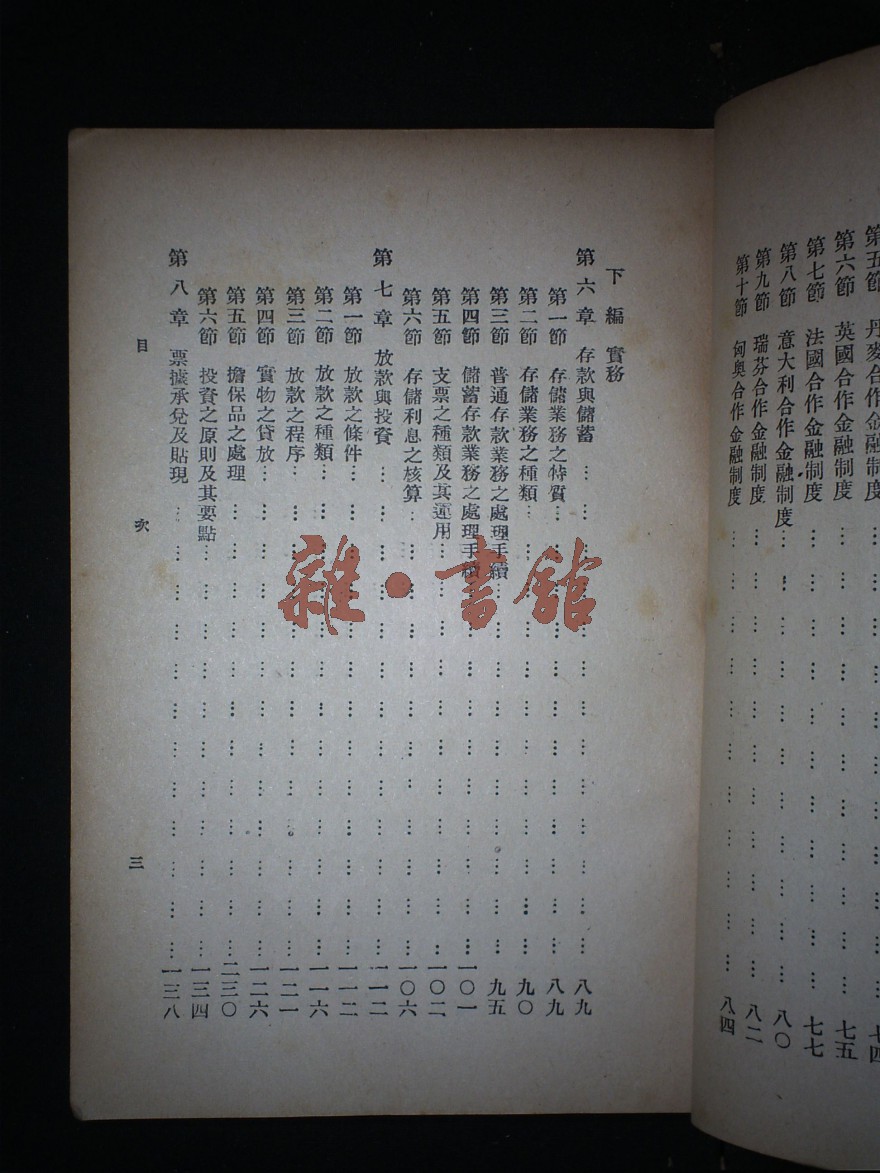 第五節 丹麥合作金融制度 … … … … … … 七四
第六節 英國合作金融制度 … … … … … … 七五
第七節 法國合作金融制度 … … … … … … 七七
第八節 意大利合作金融制度 … … … … … … 八〇
第九節 瑞芬合作金融制度 … … … … … … 八二
第十節 匈奧合作金融制度 … … … … … … 八四
下編 實務
第六章 存款與儲蓄 … … … … … … 八九
第一節 存儲業務之特質 … … … … … … 八九
第二節 存儲業務之種類 … … … … … … 九〇
第三節 普通存款業務之處理手續 … … … … … 九五
第四節 儲蓄存款業務之處理手續 … … … … … 一〇一
第五節 支票之種類及其運用 … … … … … … 一〇二
第六節 存儲利息之核算 … … … … … … 一〇六
第七章 放款與投資 … … … … … … 一一二
第一節 放款之條件 … … … … … … 一一二
第二節 放款之種類 … … … … … … 一一六
第三節 放款之程序 … … … … … … 一二一
第四節 實物之貸放 … … … … … … 一二六
第五節 擔保品之處理 … … … … … … 二三〇
第六節 投資之原則及其要點 … … … … … … 一三四
第八章 票據承兌及貼現 … … … … … … 一三八
目次
三
雜·書館